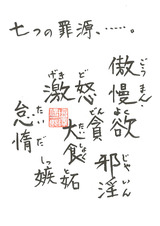 七つの罪源、……。
傲慢
ごうまん
貪欲
どんよく
邪淫
じゃいん
激怒
げきど
大食
嫉妬
しっと
怠惰
たいだ